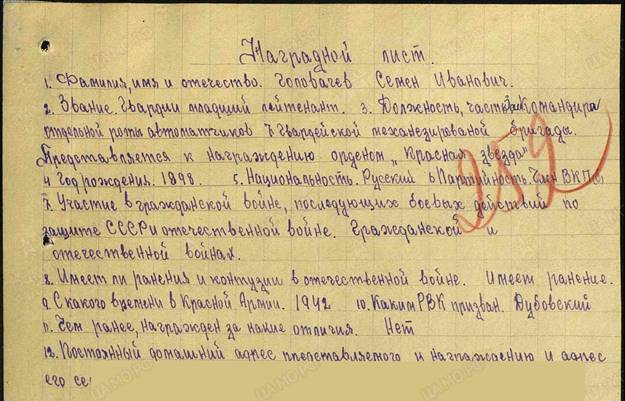 Наградной лист.
1. Фамилия, имя и отечество. Головачев Семен Иванович.
2. Звание. Гвардии младший лейтенант. 3. Должность, часть. Зам Командира
отдельной роты автоматчиков 7 Гвардейской механезированой бригады.
Представляется к награждению орденом „Красная звезда"
4 Год рождения. 1898. 5. Национальность. Русский 6 Партийность. Член ВКП(б)
7. Участие в гражданской войне, последующих боевых действий по
защите СССР и отечественной войне. Гражданской и
отечественной войнах.
8. Имеет ли ранения и контузии в отечественной войне. Имеет ранение.
9. С какого времени в Красной Армии. 1942 10. Каким РВК призван. Дубовский
11. Чем ранее, награжден за какие отличия. Нет
12. Постоянный домашний адрес представляемого и награжению и адрес
его се
252